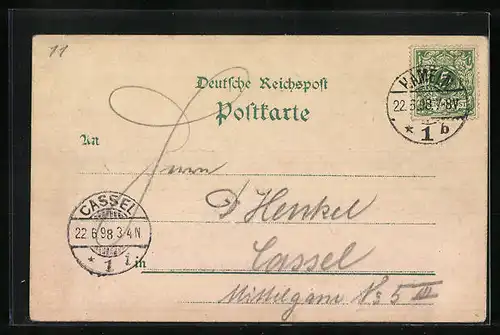 11
HAMELN
22.6.98.7-8V.
* 1 b
Deutsche Reichspost
Postkarte
An
Herrn
Dr Henkel
CASSEL
22 6 98 3-4N
* 1 i.
in Cassel
No 5 III